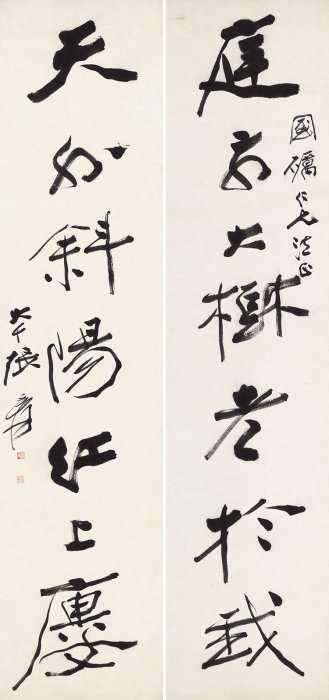 國礪仁兄法正
庭前大樹老於我
天外斜陽紅上廔
大千張爰